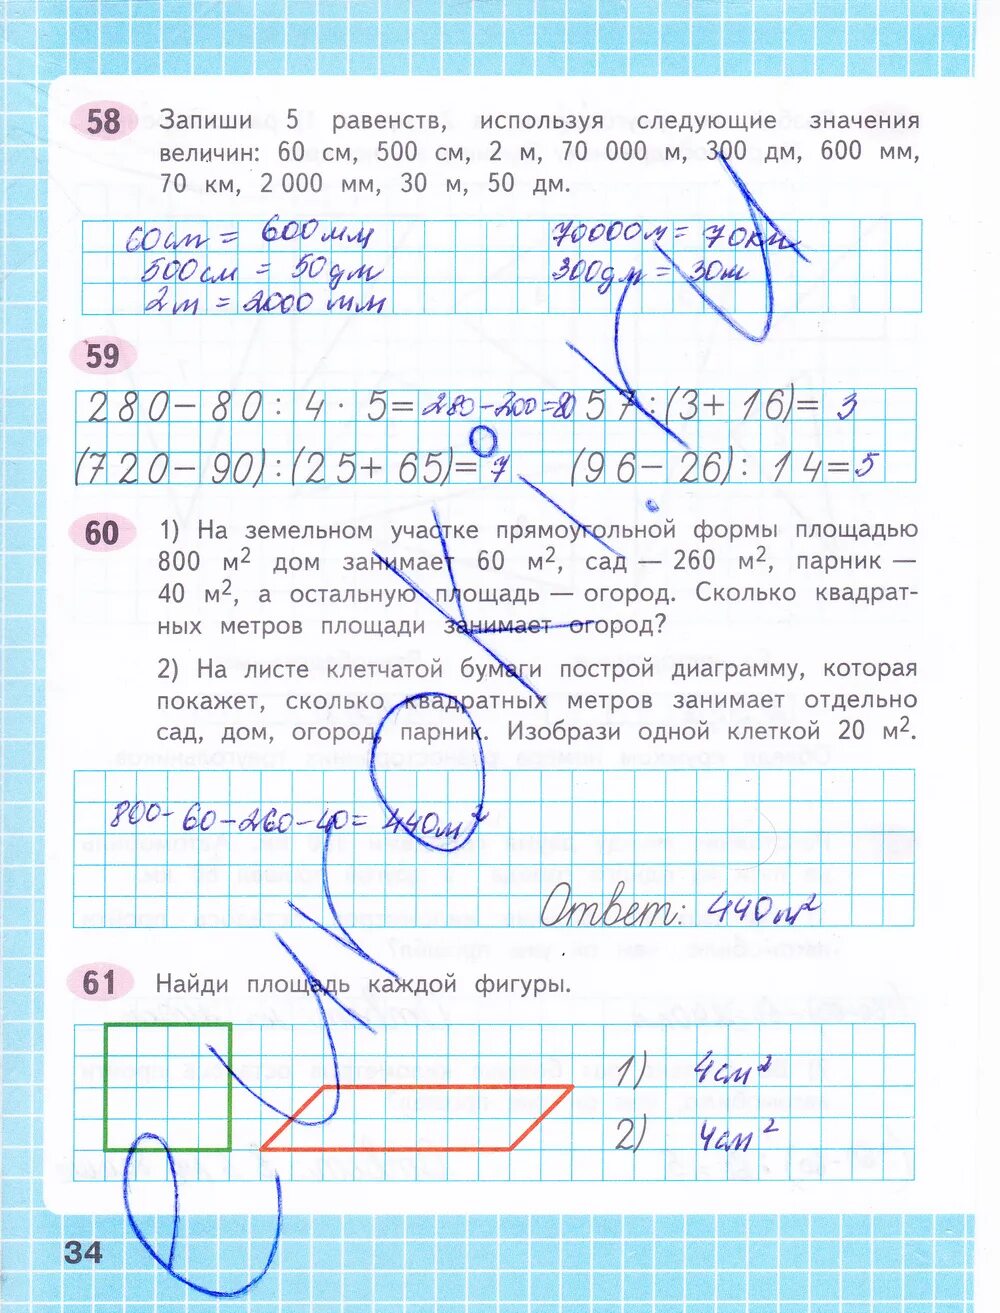 58 Запиши 5 равенств, используя следующие значения
величин: 60 см, 500 см, 2 м, 70 000 м, 300 дм, 600 мм,
70 км, 2 000 мм, 30 м, 50 дм.
60см = 600мм 70000м = 70км
500см = 50дм 300дм = 30м
2м = 2000 мм
59
280 – 80 : 4 · 5 = 280-200=80 57 : (3 + 16) = 3
(720 – 90) : (25 + 65) = 7 (96 – 26) : 14 = 5
60 1) На земельном участке прямоугольной формы площадью
800 м² дом занимает 60 м², сад — 260 м², парник —
40 м², а остальную площадь — огород. Сколько квадрат-
ных метров площади занимает огород?
2) На листе клетчатой бумаги построй диаграмму, которая
покажет, сколько квадратных метров занимает отдельно
сад, дом, огород, парник. Изобрази одной клеткой 20 м².
800-60-260-40= 440м²
Ответ: 440м²
61 Найди площадь каждой фигуры.
1) 4см²
2) 4см²
34